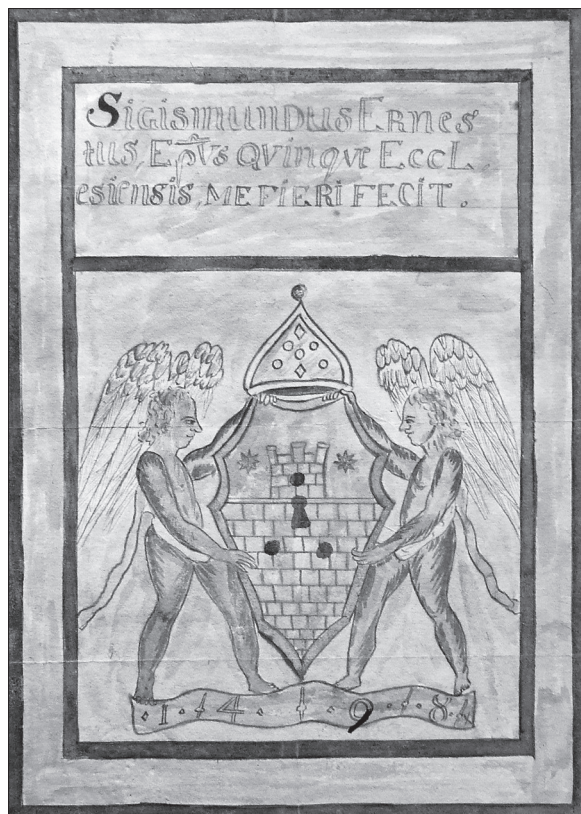 Sigismundus Ernes
tus Ep̅us Quinque Eccl
esiensis me fieri fecit.
· 1 · 4 · 9 · 8 ·